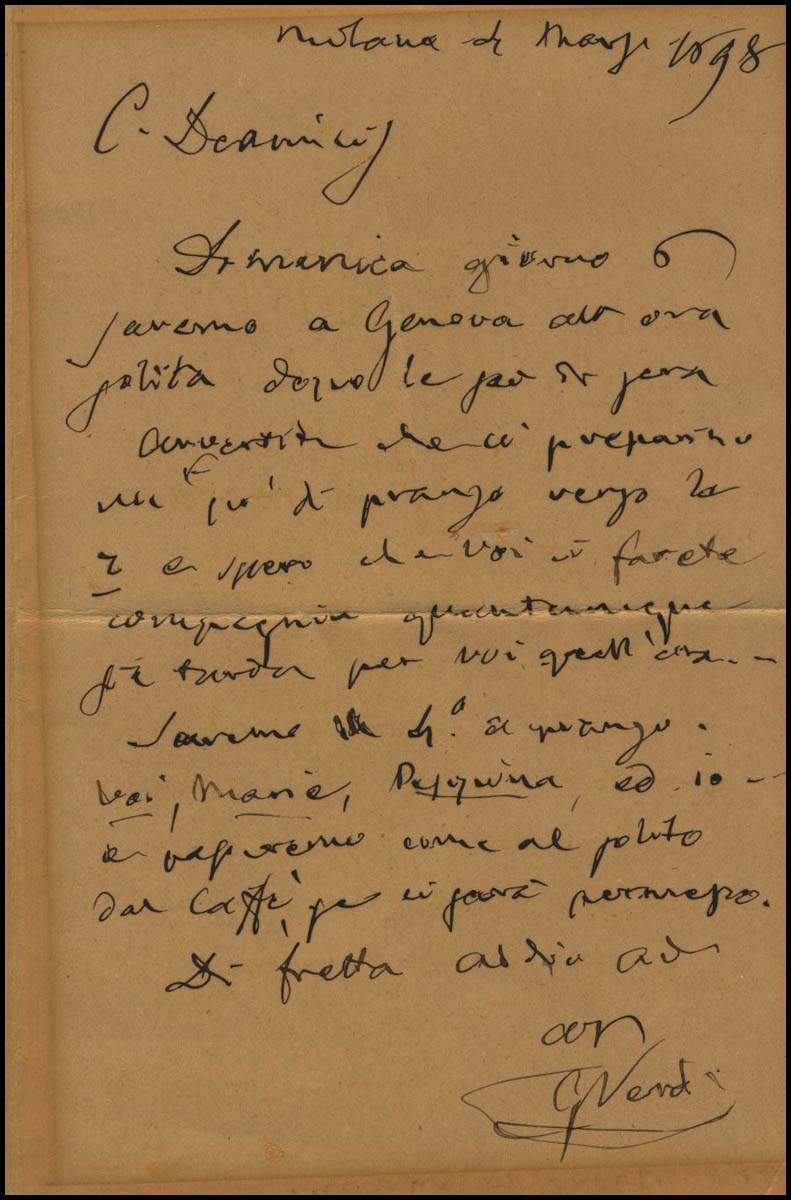 Milano 4 Marzo 1898
C. Deamicis
Domenica giorno 6
saremo a Genova all ora
solita dopo le sei di sera
Avvertite che ci preparino
un po' di pranzo verso le
7 e spero che voi ci farete
compagnia quantunque
sia tarda per voi quell'ora. -
Saremo 4. a pranzo.
Voi, Maria, Peppina, ed io -
e passeremo come al solito
dal Caffè, se ci sarà permesso.
Di fretta addio ad
G Verdi